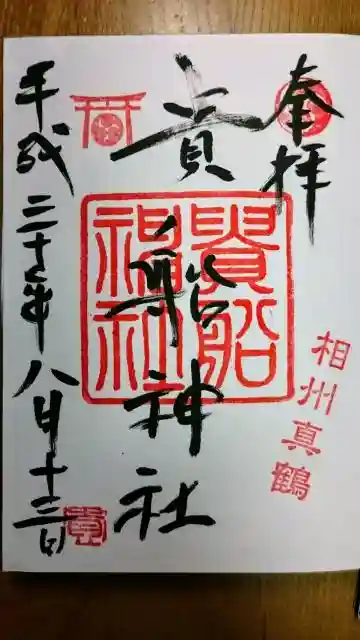 奉拝
相州真鶴
貴船神社
貴船神社
平成三十年八月十三日